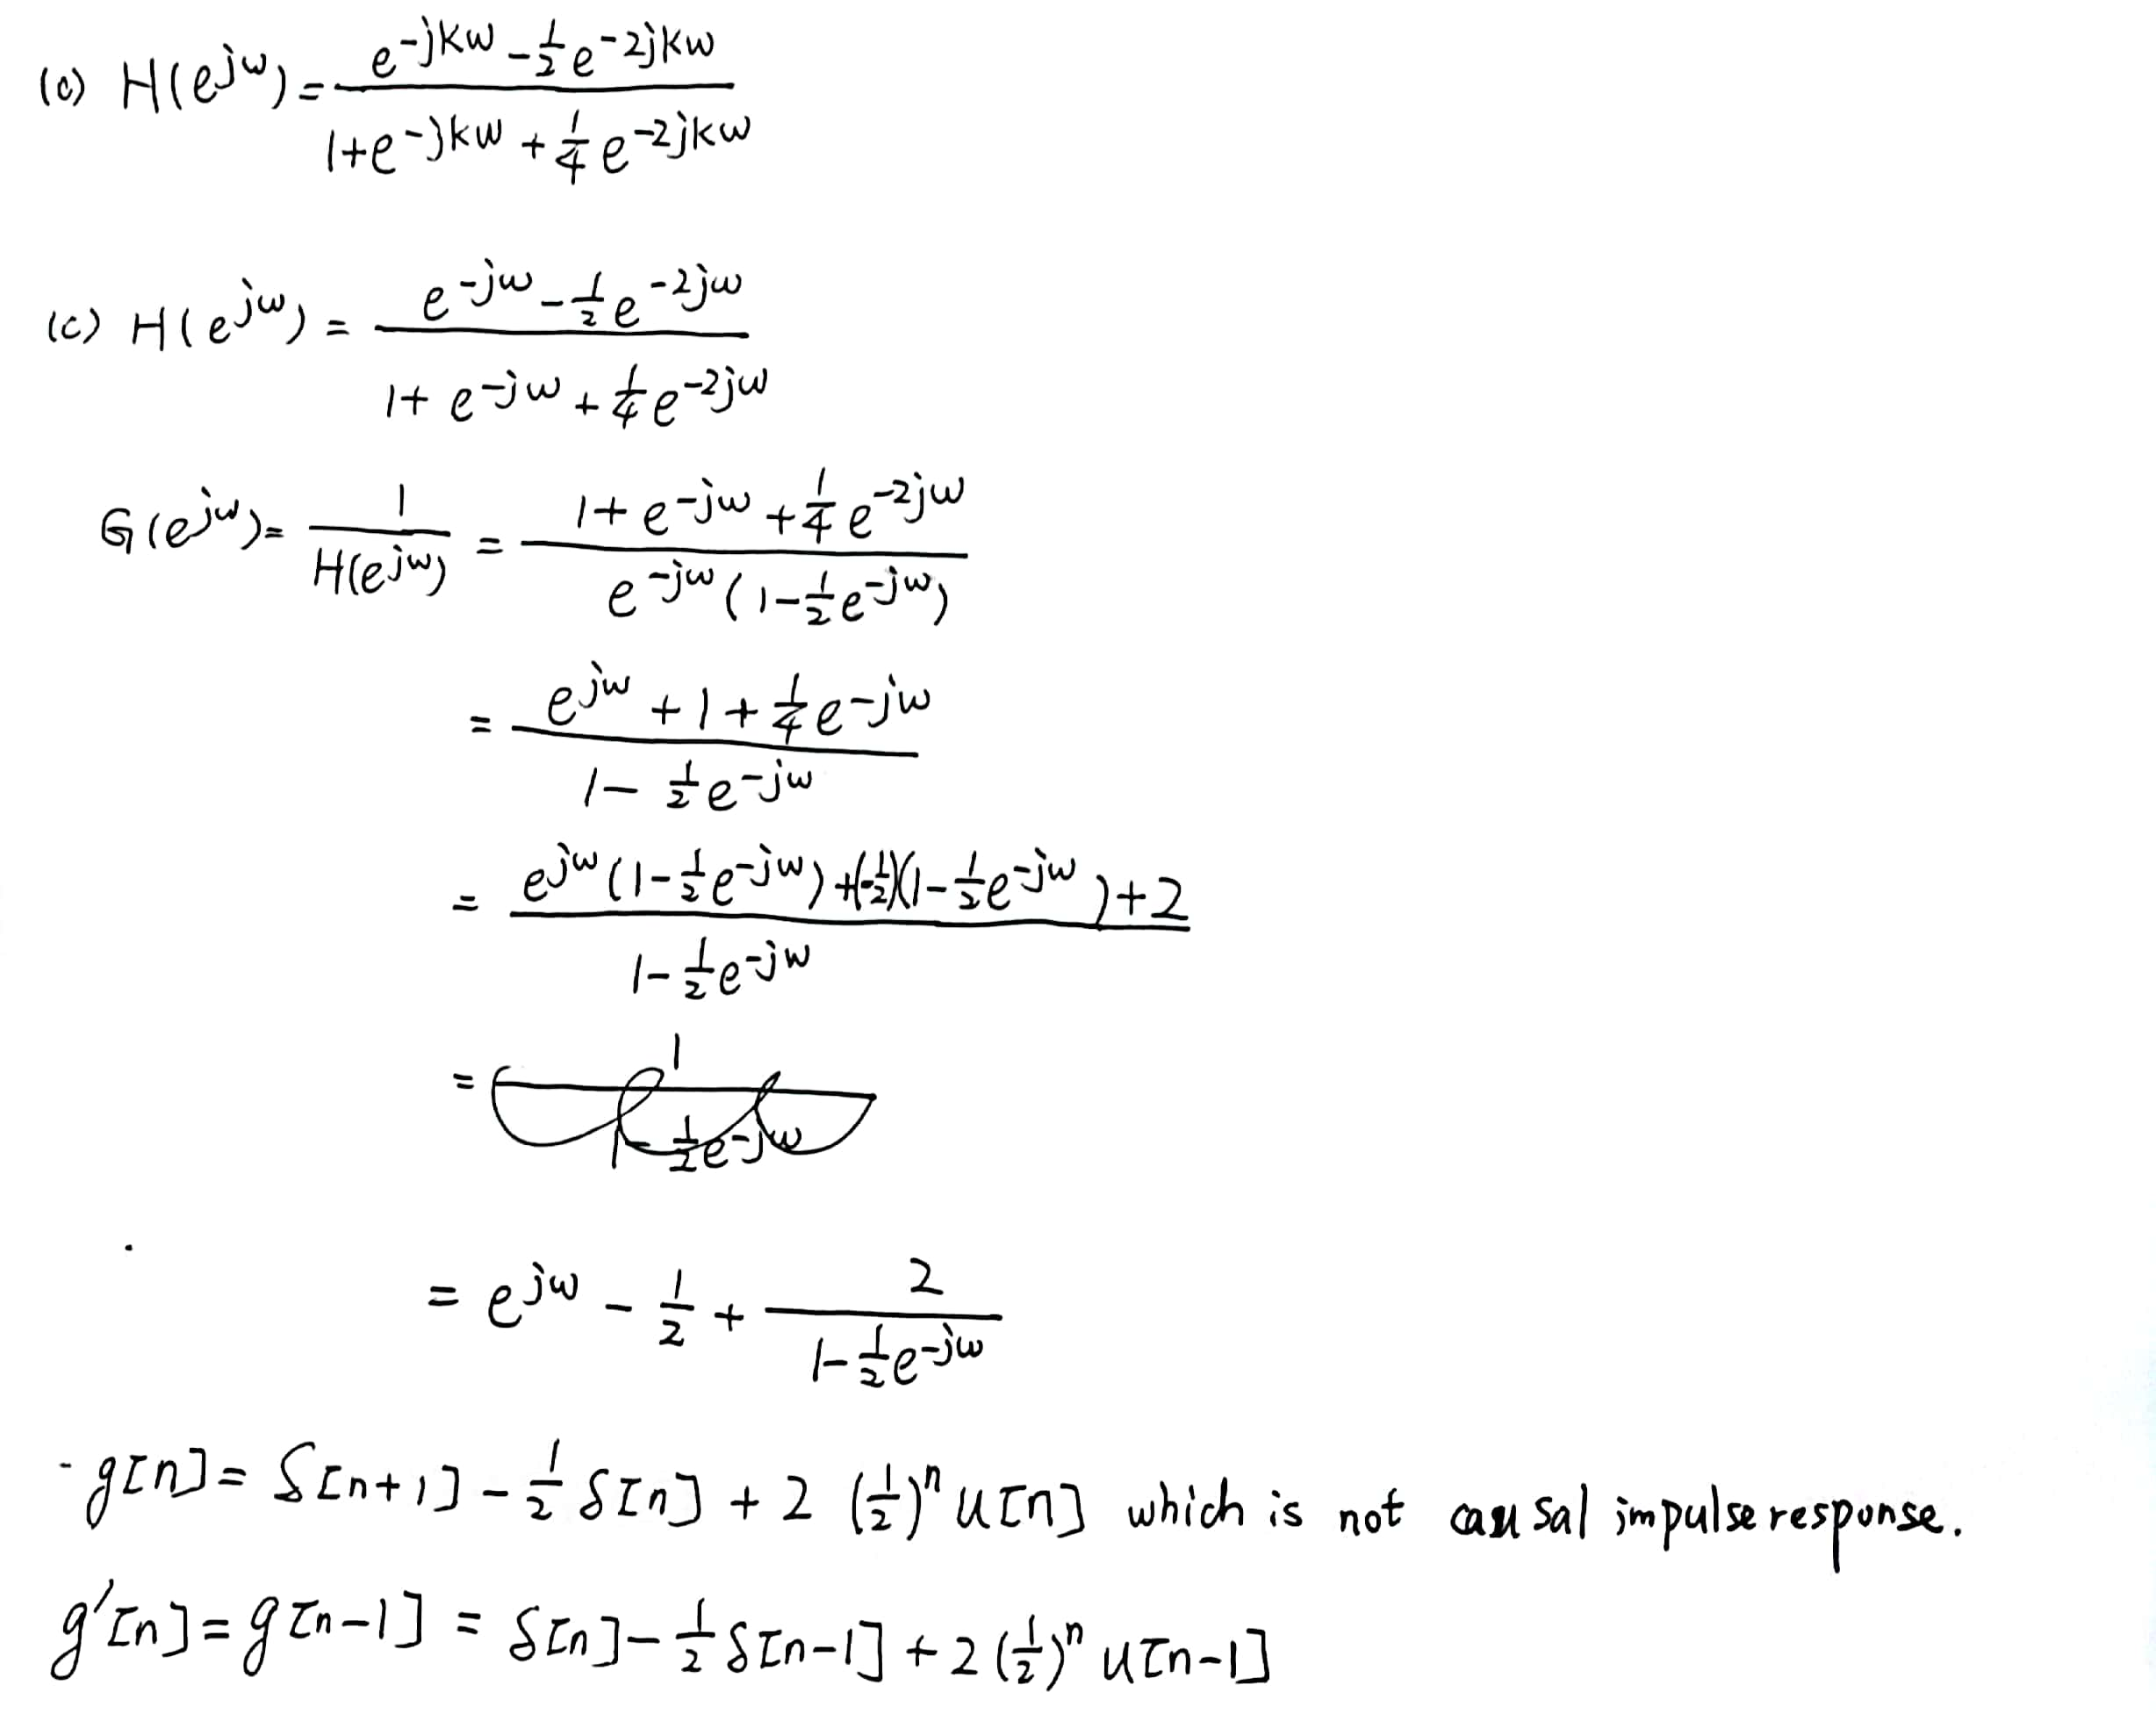 (c) H(e^{jω}) = (e^{-jkω} - 1/2 e^{-2jkω}) / (1 + e^{-jkω} + 1/4 e^{-2jkω})
(c) H(e^{jω}) = (e^{-jω} - 1/2 e^{-2jω}) / (1 + e^{-jω} + 1/4 e^{-2jω})
G(e^{jω}) = 1 / H(e^{jω}) = (1 + e^{-jω} + 1/4 e^{-2jω}) / (e^{-jω}(1 - 1/2 e^{-jω}))
= (e^{jω} + 1 + 1/4 e^{-jω}) / (1 - 1/2 e^{-jω})
= (e^{jω}(1 - 1/2 e^{-jω}) + (-1/2)(1 - 1/2 e^{-jω}) + 2) / (1 - 1/2 e^{-jω})
= 1 / (1 - 1/2 e^{-jω})
= e^{jω} - 1/2 + 2 / (1 - 1/2 e^{-jω})
g[n] = δ[n+1] - 1/2 δ[n] + 2 (1/2)^n u[n] which is not causal impulse response.
g'[n] = g[n-1] = δ[n] - 1/2 δ[n-1] + 2 (1/2)^n u[n-1]